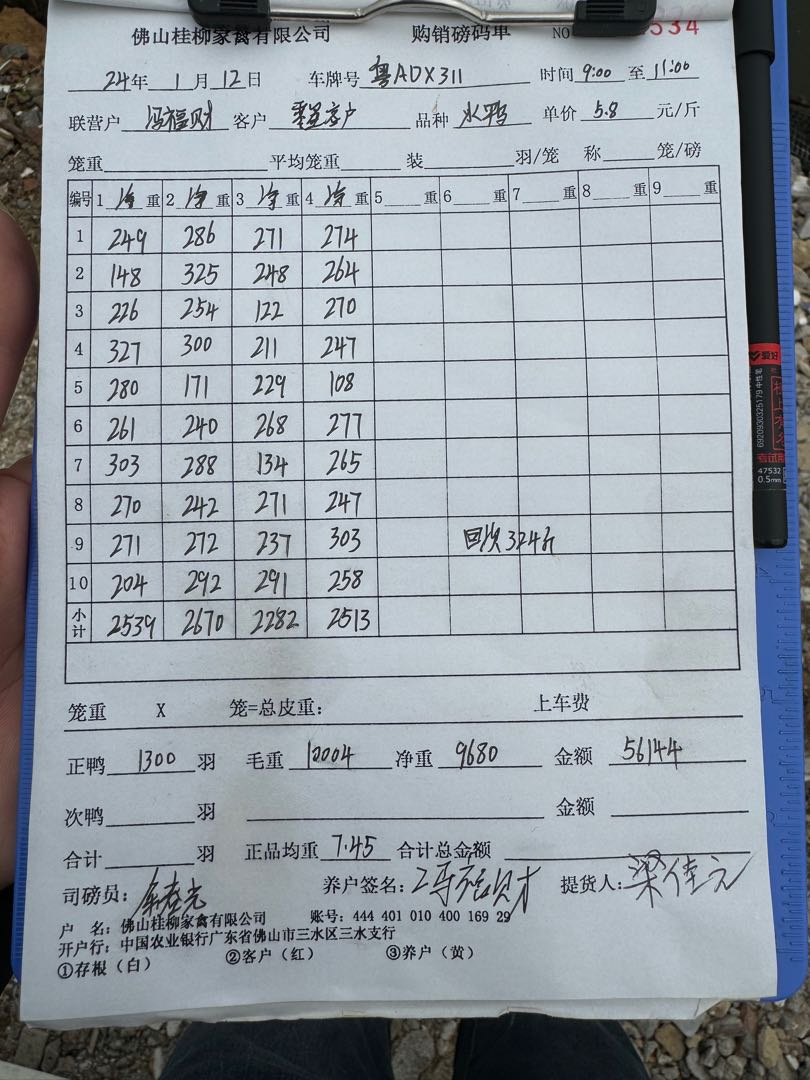 佛山桂柳家禽有限公司 购销磅码单 NO 534
24年 1月12日 车牌号 粤ADX311 时间 9:00 至 11:00
联营户 冯福财 客户 品种 水鸭 单价 5.8 元/斤
笼重 平均笼重 装 羽/笼 称 笼/磅
编号 1 净 重 2 净 重 3 净 重 4 净 重 5 重 6 重 7 重 8 重 9 重
1 249 286 271 274
2 148 325 248 264
3 226 254 122 270
4 327 300 211 247
5 280 171 229 108
6 261 240 268 277
7 303 288 134 265
8 270 242 271 247
9 271 272 237 303 回次324斤
10 204 292 291 258
小计 2539 2670 2282 2513
笼重 X 笼=总皮重: 上车费
正鸭 1300 羽 毛重 10004 净重 9680 金额 56144
次鸭 羽 金额
合计 羽 正品均重 7.45 合计总金额
司磅员: 养户签名: 冯福财 提货人: 梁佳元
户 名: 佛山桂柳家禽有限公司 账号: 444 401 010 400 169 29
开户行: 中国农业银行广东省佛山市三水区三水支行
①存根（白） ②客户（红） ③养户（黄）
6920930325179 中性笔
考试用
47532
0.5mm